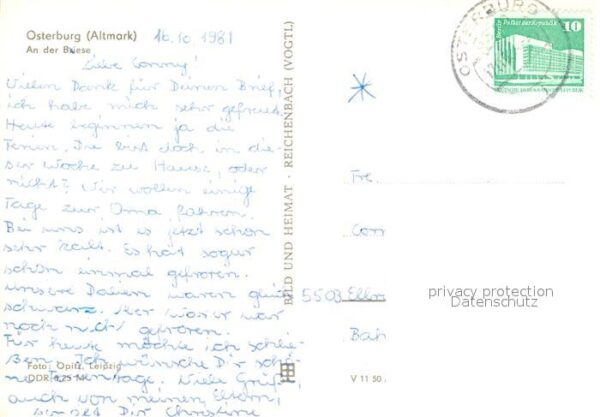 Osterburg (Altmark) 16.10.1981
An der Biese
Liebe Conny!
Vielen Dank für Deinen Brief,
ich habe mich sehr gefreut.
Heute beginnen ja die
Ferien. Du bist doch in die-
ser Woche zu Hause, oder
nicht? Wir wollen einige
Tage zur Oma fahren.
Bei uns ist es jetzt schon
sehr kalt. Es hat sogar
schon einmal gefroren.
Unsere Dalien waren gleich
schwarz. Aber Wasser war
noch nicht gefroren.
Für heute möchte ich schlie-
ßen. Ich wünsche Dir schö-
ne Ferientage. Viele Grüße,
auch von meinen Eltern,
Dir Christine
Foto: Opitz, Leipzig
DDR 0,25 M
BILD UND HEIMAT · REICHENBACH (VOGTL)
V 11 50
OSTERBURG
Berlin, Palast der Republik
10
DDR
Fre
Com
5503 Ellr
Bah
privacy protection
Datenschutz